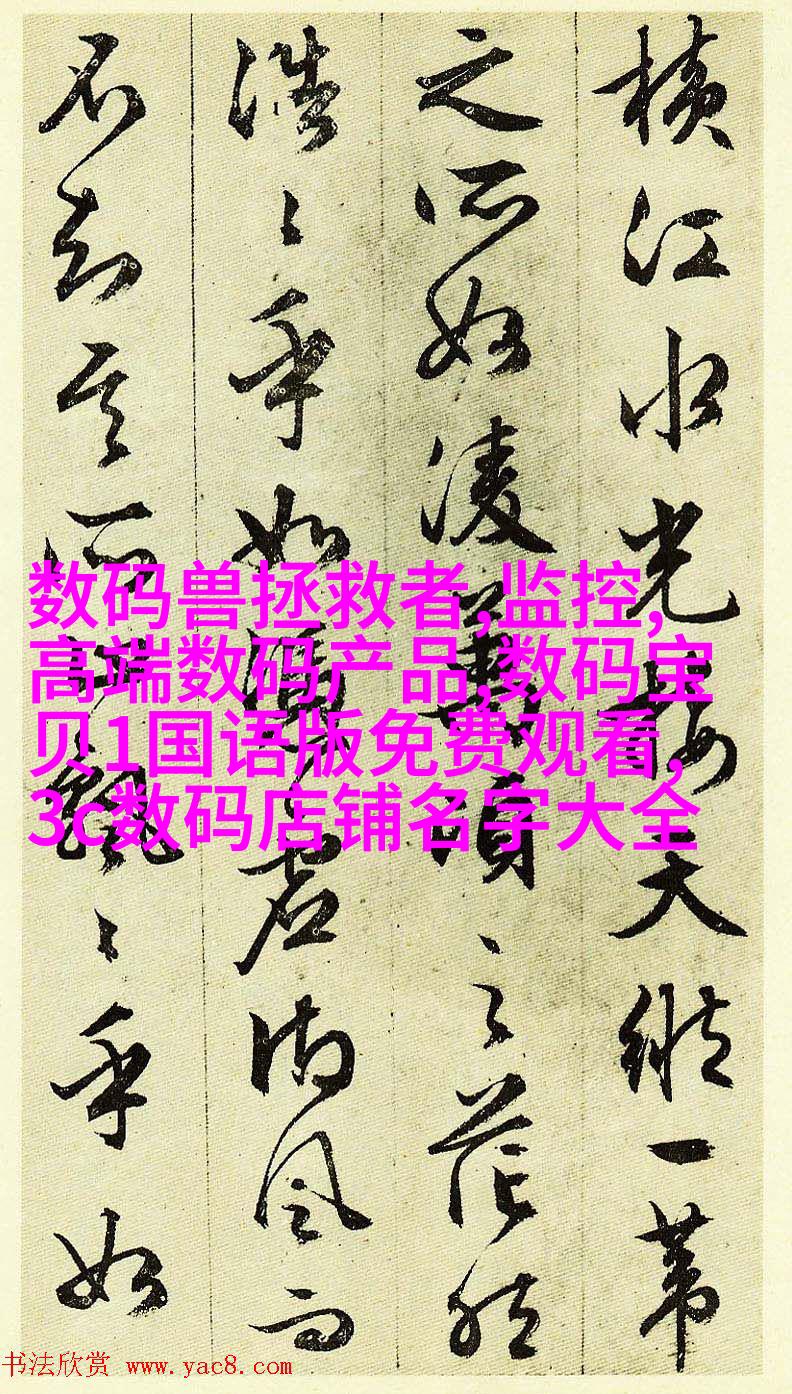 橫江水光接天縱一葦
之所如凌萬頃之茫然
浩〻乎如馮虛御風而
不知其所止飄〻乎如
数码兽拯救者,监控,
高端数码产品,数码宝
贝1国语版免费观看,
3c数码店铺名字大全
书法欣赏 www.yac8.com